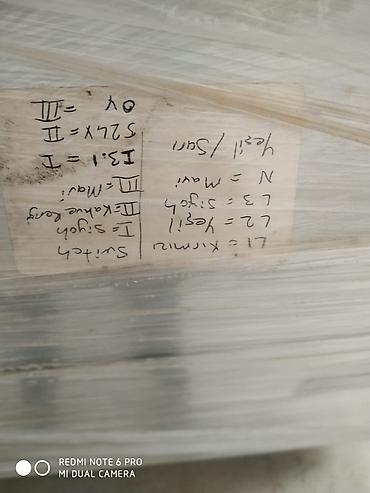 L1 = Kırmızı
L2 = Yeşil
L3 = Siyah
N = Mavi
Yeşil / Sarı
Switch
I = Siyah
II = Kahve Reng
III = Mavi
I3.1 = I
S24V = II
0V = III
REDMI NOTE 6 PRO
MI DUAL CAMERA